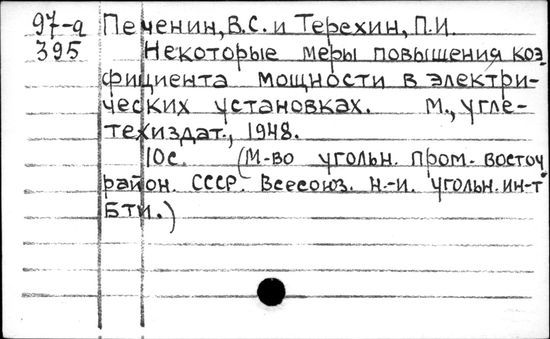 97-9 Печенин, В.С. и Терехин, П.И.
395 Некоторые меры повышения коэф-
фициента мощности в электри-
ческих установках. М., Угле-
техиздат., 1948.
10с. (М-во угольн. пром. восточ.
район. СССР. Всесоюз. н.-и. угольн. ин-т
БТИ.)